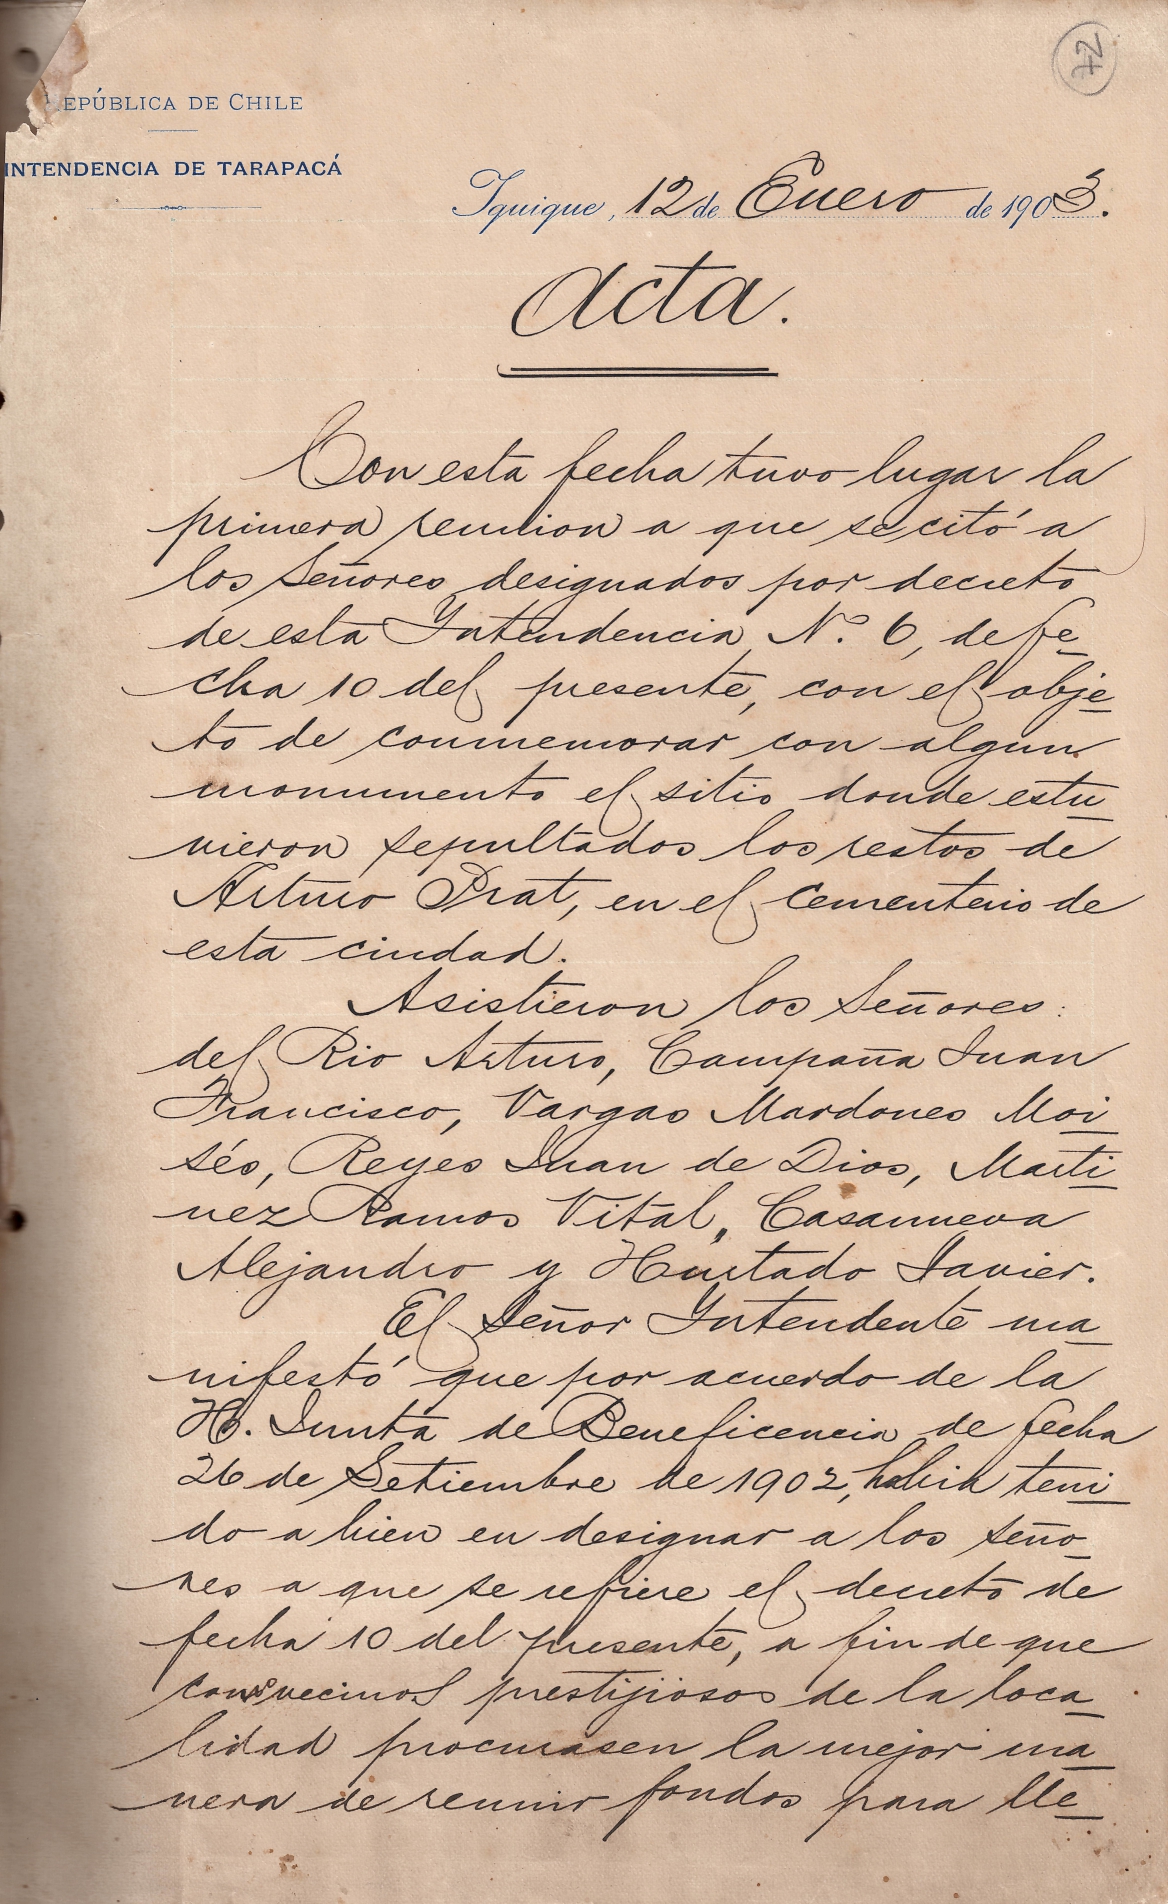 24
EPÚBLICA DE CHILE
INTENDENCIA DE TARAPACÁ
Iquique, 12 de Enero de 1903.
Acta.
Con esta fecha tuvo lugar la
primera reunion a que se citó a
los Señores designados por decreto
de esta Intendencia N.º 6, de fe
cha 10 del presente, con el obje
to de conmemorar con algun
monumento el sitio donde estu
vieron sepultados los restos de
Arturo Prat, en el cementerio de
esta ciudad.
Asistieron los Señores:
del Rio Arturo, Campaña Juan
Francisco, Vargas Mardones Moi
sés, Reyes Juan de Dios, Marti
nez Ramos Vital, Casanueva
Alejandro y Hurtado Javier.
El Señor Intendente ma
nifestó que por acuerdo de la
H. Junta de Beneficencia de fecha
26 de Setiembre de 1902, habia teni
do a bien en designar a los seño
res a que se refiere el decreto de
fecha 10 del presente, a fin de que
como vecinos prestijiosos de la loca
lidad procurasen la mejor ma
nera de reunir fondos para lle